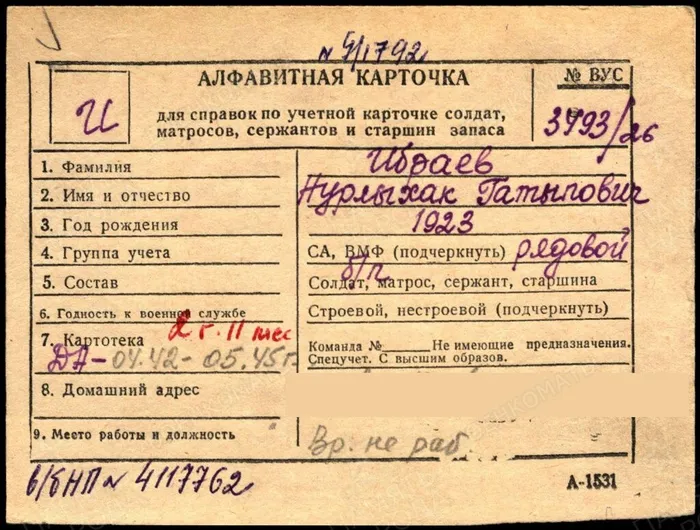 № 4/1792
АЛФАВИТНАЯ КАРТОЧКА
№ ВУС
И
для справок по учетной карточке солдат,
матросов, сержантов и старшин запаса
3793/26
1. Фамилия Ибраев
2. Имя и отчество Нурлыхак Гатылович
3. Год рождения 1923
4. Группа учета СА, ВМФ (подчеркнуть) рядовой
б/п
5. Состав Солдат, матрос, сержант, старшина
6. Годность к военной службе Строевой, нестроевой (подчеркнуть)
2 г. 11 мес
7. Картотека Команда №____ Не имеющие предназначения.
Спецучет. С высшим образов.
ДА-04.42-05.45г
8. Домашний адрес
9. Место работы и должность Вр. не раб
в/б НП № 4117762
А-1531